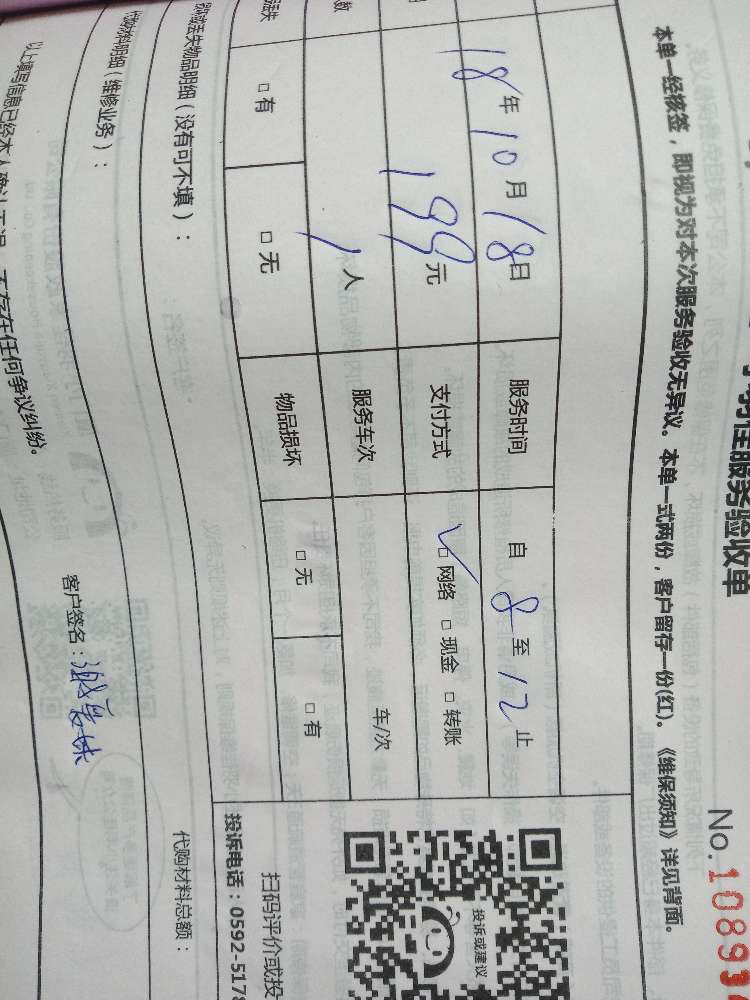 服务验收单
No.1089
本单一经核签，即视为对本次服务验收无异议。本单一式两份，客户留存一份(红)。《维保须知》详见背面。
18年10月18日 服务时间 自8至12止
199元 支付方式 ✓□ 网络 □ 现金 □ 转账
数 1人 服务车次 车/次
□ 有 □ 无 物品损坏 □ 无 □ 有
丢失物品明细（没有可不填）：
投诉或建议
扫码评价或投
投诉电话：0592-5178
代购材料明细（维修业务）：
代购材料总额：
以上填写信息已经本人确认无误，不存在任何争议纠纷。
客户签名：